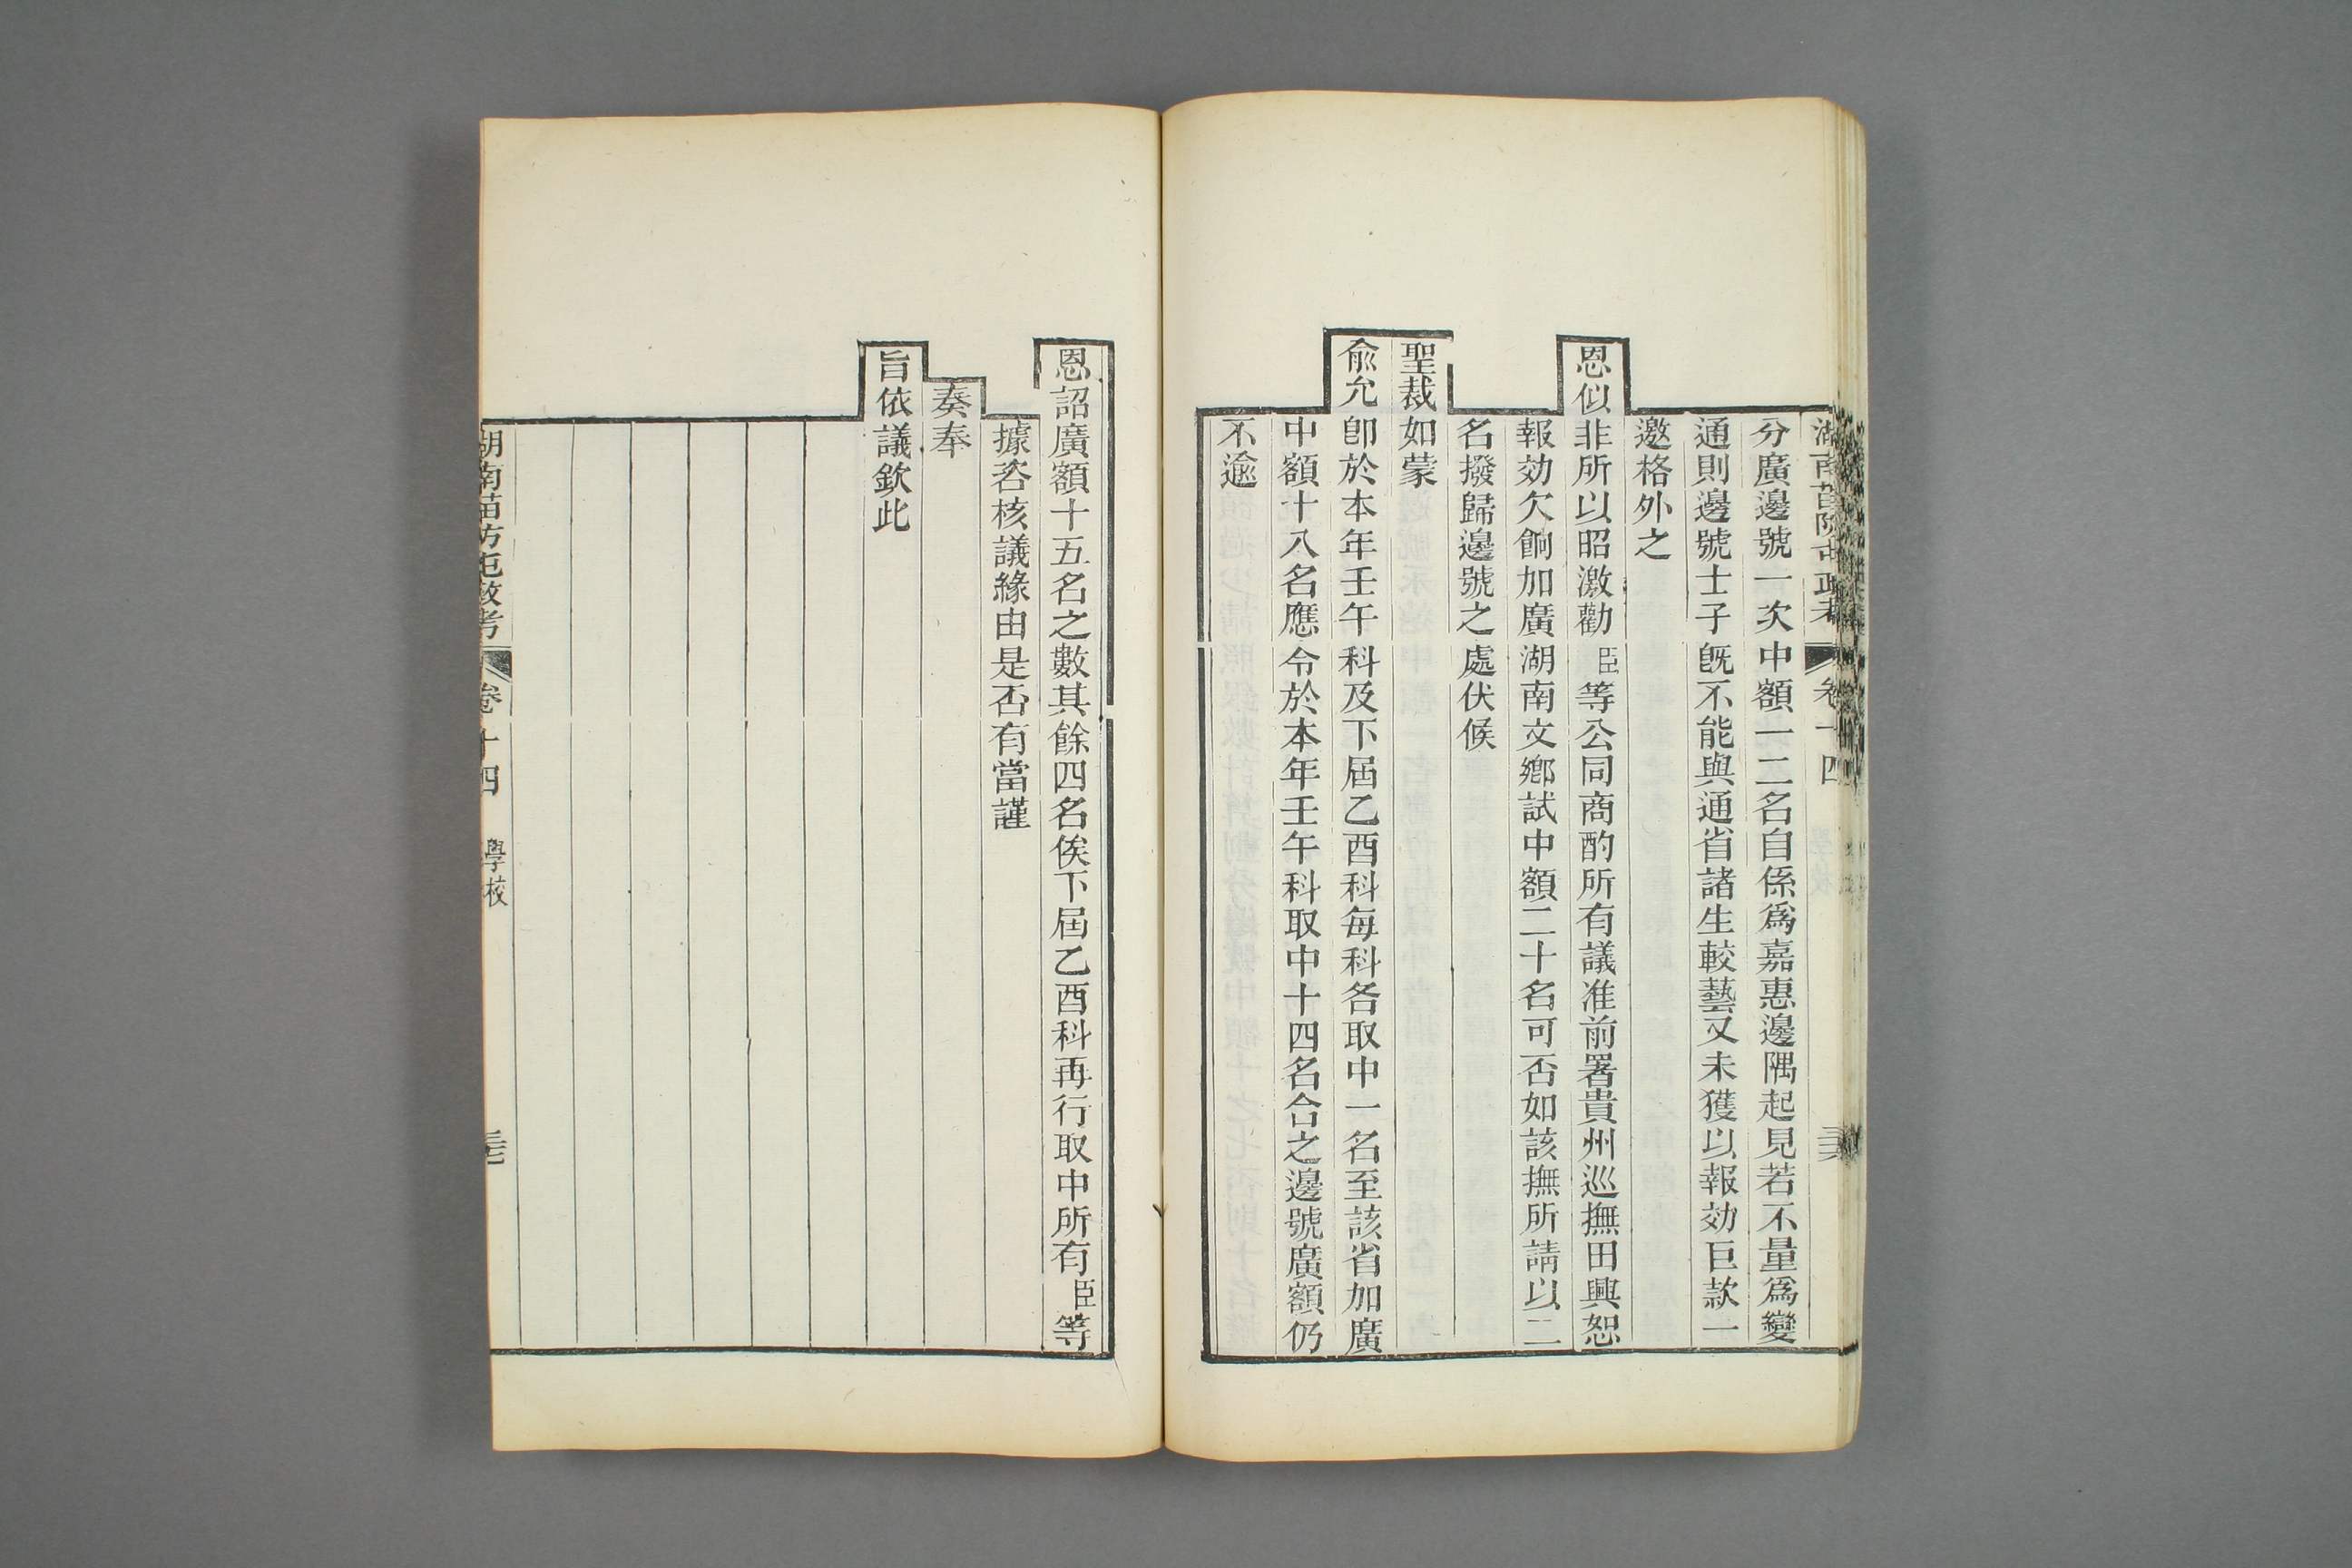 湖南苗防屯政考 卷十四
分廣邊號一次中額一二名自係爲嘉惠邊隅起見若不量爲變
通則邊號士子旣不能與通省諸生較藝又未獲以報効巨款一
邀格外之
恩似非所以昭激勸臣等公同商酌所有議准前署貴州巡撫田興恕
報効欠餉加廣湖南文鄉試中額二十名可否如該撫所請以二
名撥歸邊號之處伏候
聖裁如蒙
俞允卽於本年壬午科及下屆乙酉科每科各取中一名至該省加廣
中額十八名應令於本年壬午科取中十四名合之邊號廣額仍
不逾
恩詔廣額十五名之數其餘四名俟下屆乙酉科再行取中所有臣等
據咨核議緣由是否有當謹
奏奉
旨依議欽此
湖南苗防屯政考 卷十四 學校 三七